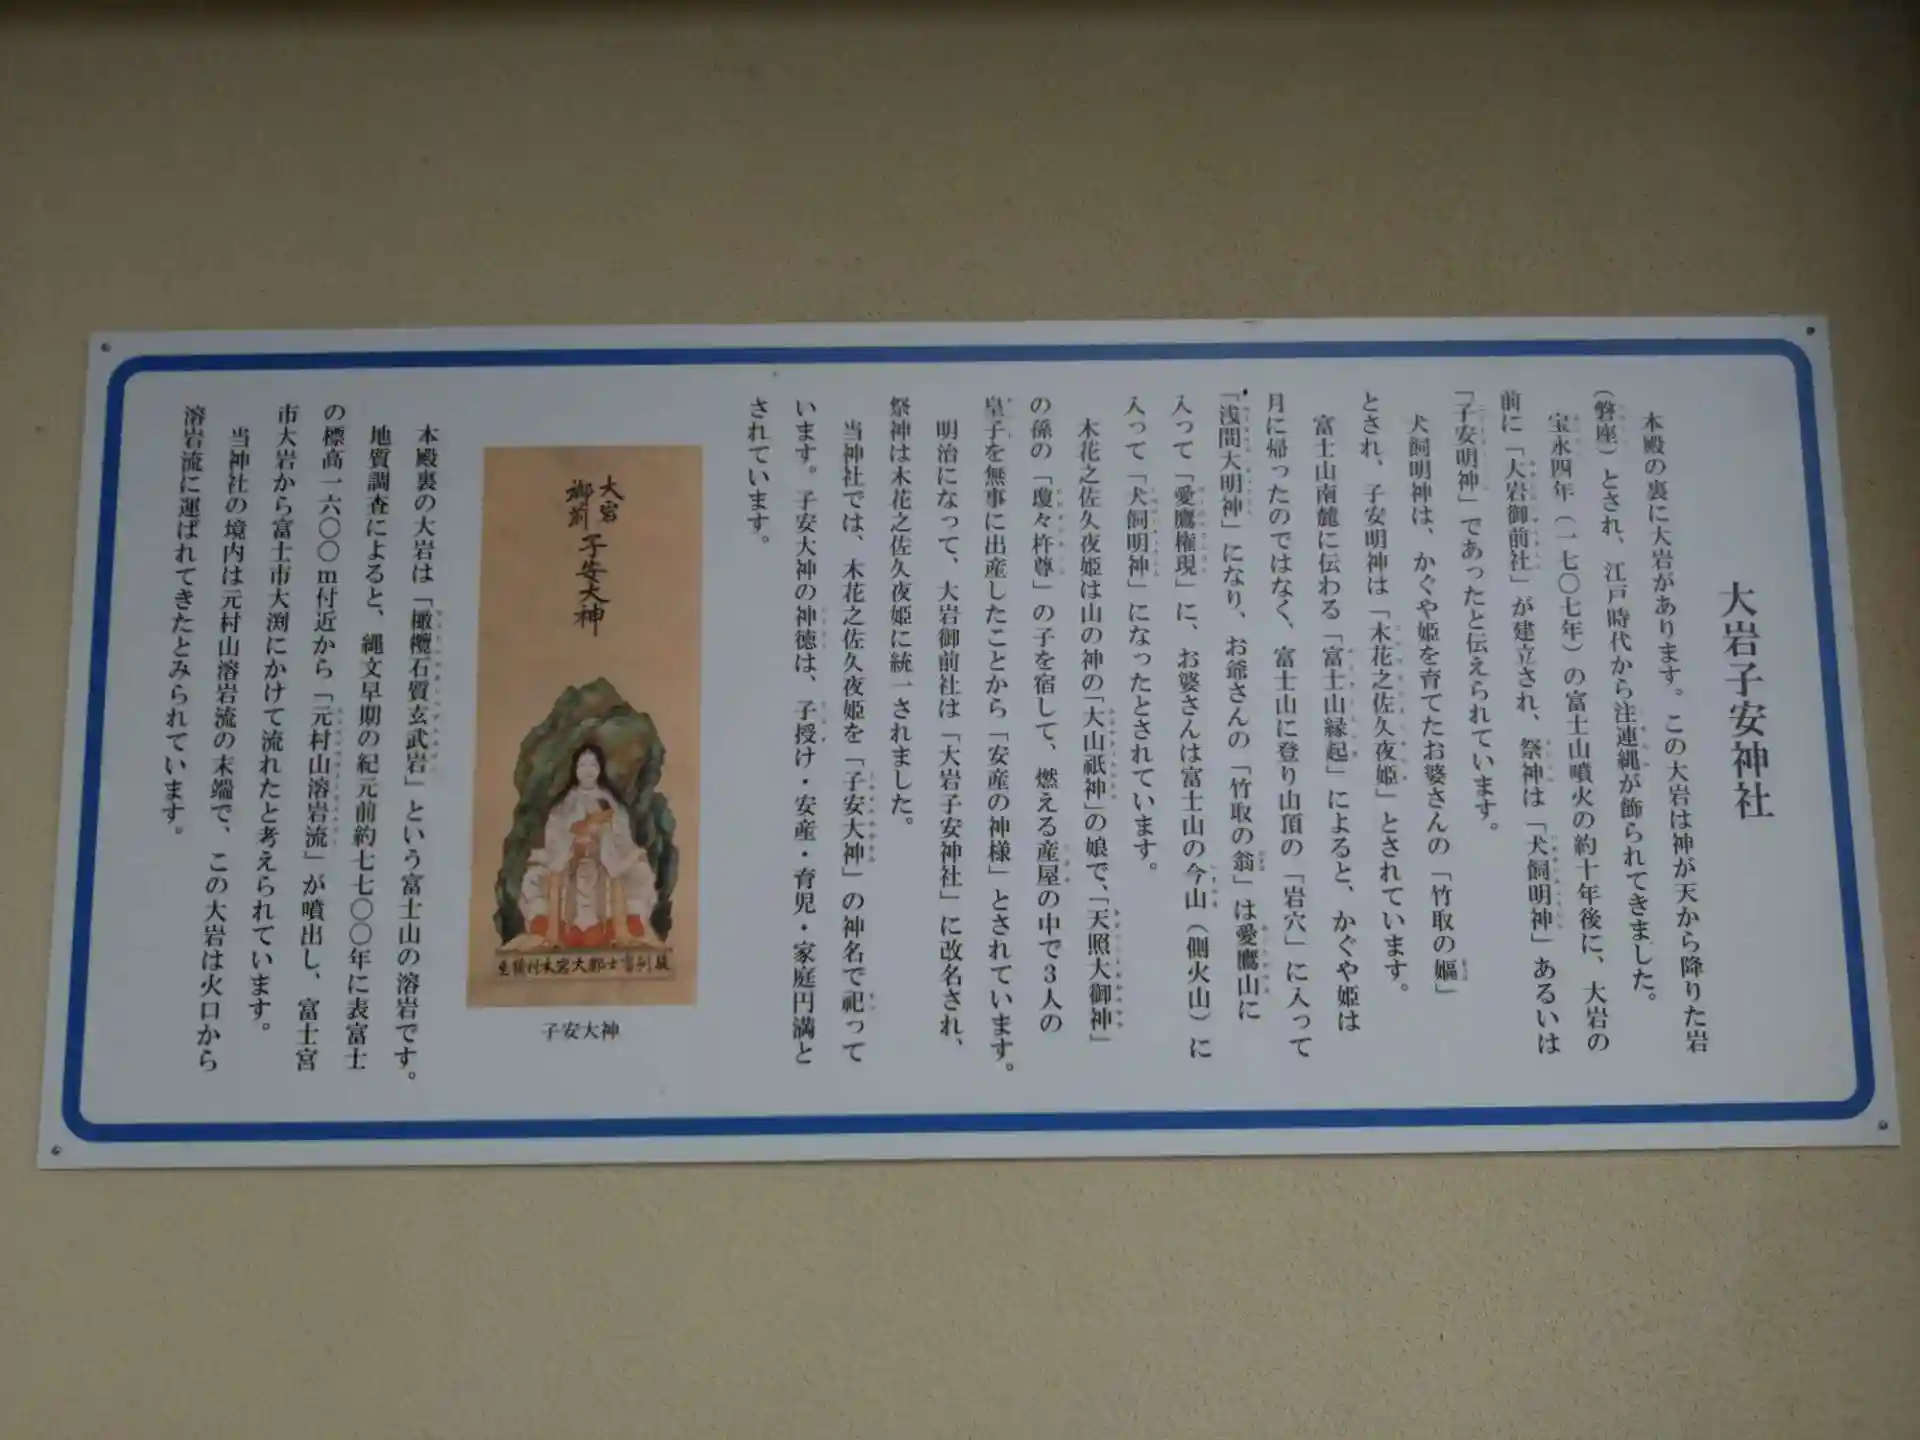 大岩子安神社
本殿の裏に大岩があります。この大岩は神が天から降りた岩
（磐座）とされ、江戸時代から注連縄が飾られてきました。
宝永四年（一七〇七年）の富士山噴火の約十年後に、大岩の
前に「大岩御前社」が建立され、祭神は「犬飼明神」あるいは
「子安明神」であったと伝えられています。
犬飼明神は、かぐや姫を育てたお婆さんの「竹取の嫗」
とされ、子安明神は「木花之佐久夜姫」とされています。
富士山南麓に伝わる「富士山縁起」によると、かぐや姫は
月に帰ったのではなく、富士山に登り山頂の「岩穴」に入って
「浅間大明神」になり、お爺さんの「竹取の翁」は愛鷹山に
入って「愛鷹権現」に、お婆さんは富士山の今山（側火山）に
入って「犬飼明神」になったとされています。
木花之佐久夜姫は山の神の「大山祇神」の娘で、「天照大御神」
の孫の「瓊々杵尊」の子を宿して、燃える産屋の中で３人の
皇子を無事に出産したことから「安産の神様」とされています。
明治になって、大岩御前社は「大岩子安神社」に改名され、
祭神は木花之佐久夜姫に統一されました。
当神社では、木花之佐久夜姫を「子安大神」の神名で祀って
います。子安大神の神徳は、子授け・安産・育児・家庭円満と
されています。
大宮
御前
子安大神
子安大神
本殿裏の大岩は「橄欖石質玄武岩」という富士山の溶岩です。
地質調査によると、縄文早期の紀元前約七七〇〇年に表富士
の標高一六〇〇ｍ付近から「元村山溶岩流」が噴出し、富士宮
市大岩から富士市大渕にかけて流れたと考えられています。
当神社の境内は元村山溶岩流の末端で、この大岩は火口から
溶岩流に運ばれてきたとみられています。